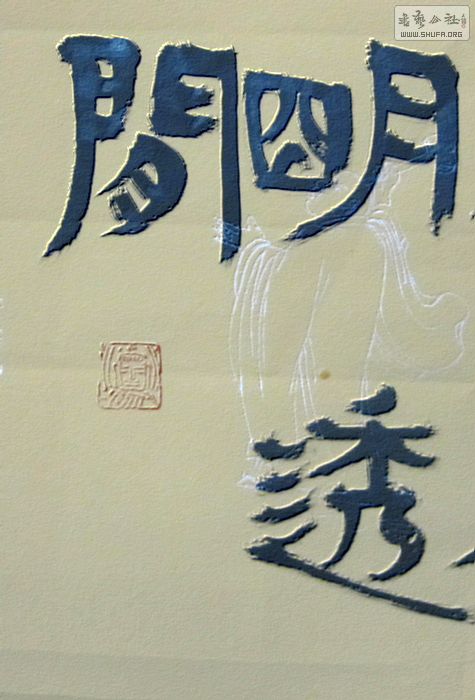 書藝公社
WWW.SHUFA.ORG
朙間
透